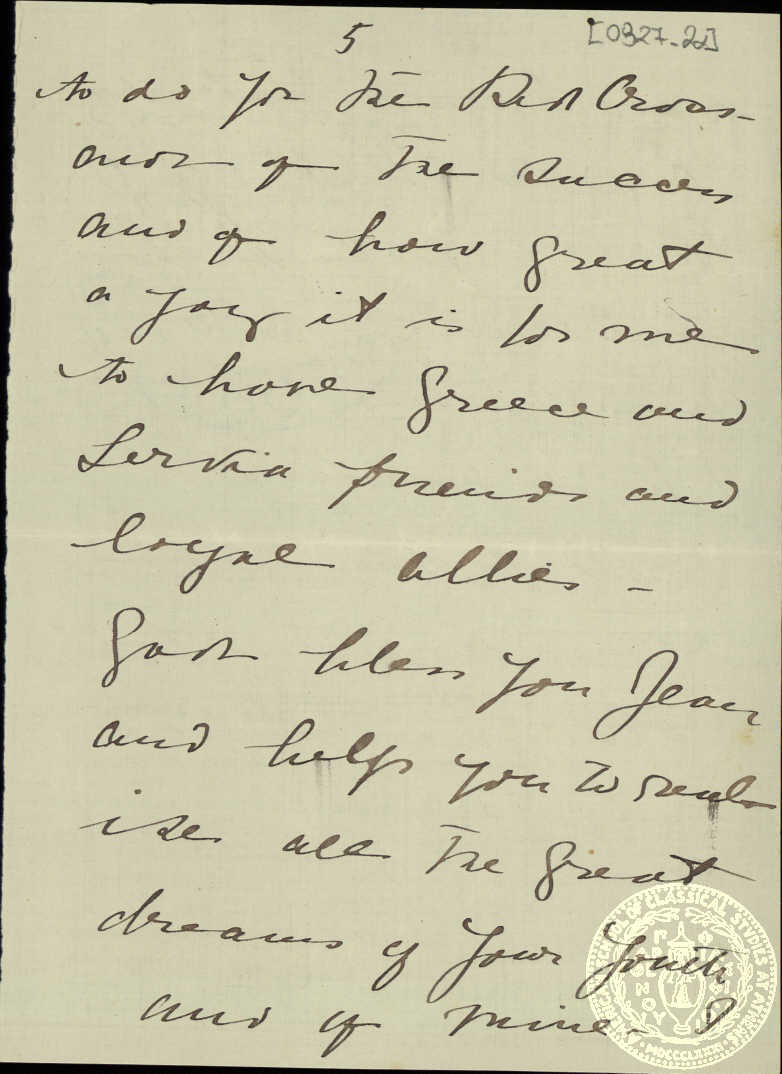 5
[0327-22]
to do for the Red Cross -
and of the success
and of how great
a joy it is for me
to have Greece and
Servia friends and
loyal allies -
God bless you Jean
and help you to real-
ise all the great
dreams of your youth
and of mine - I
OF CLASSICAL STUDIES AT ATHENS
MDCCCLXXXI